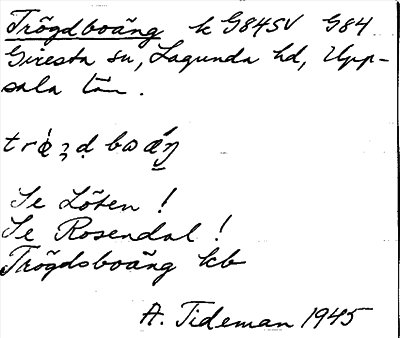 Trögdboäng k G84SV G84
Giresta sn, Lagunda hd, Upp-
sala län.
Se Löten!
Se Rosendal!
Trögdsboäng kb
A. Tideman 1945